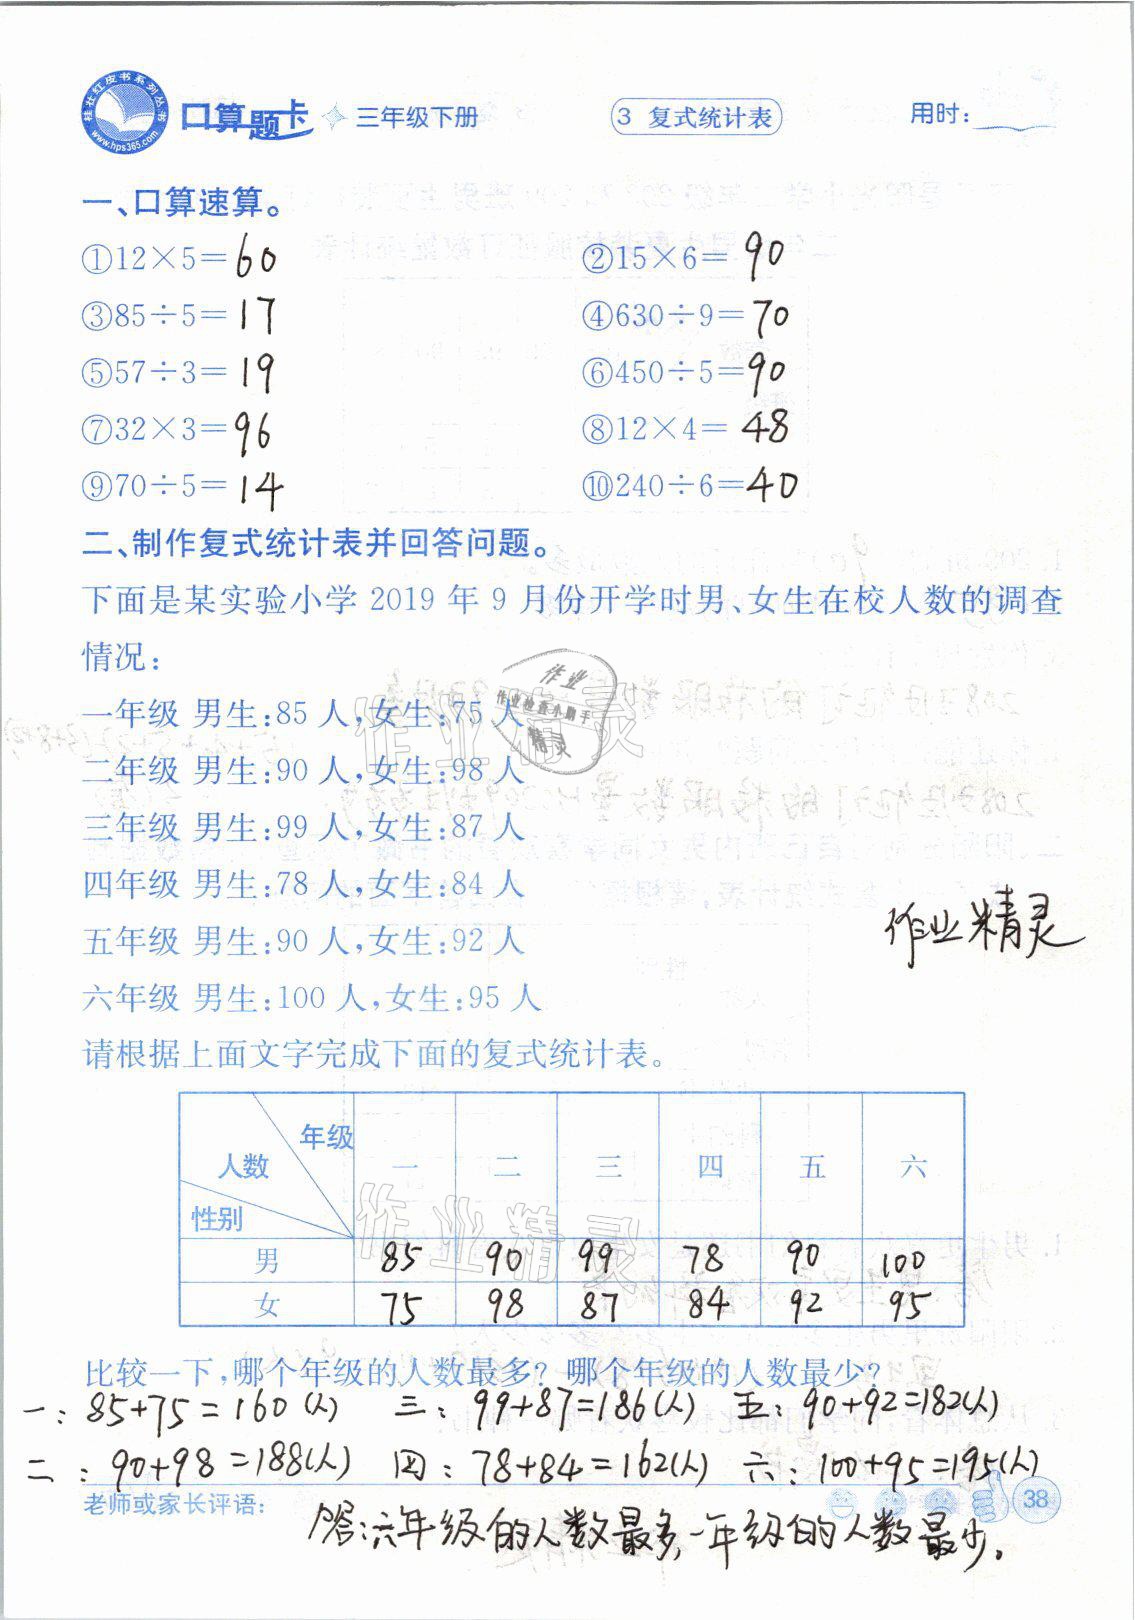 桂壮红皮书系列丛书
www.hps365.com
口算题卡 三年级下册 3 复式统计表 用时：
一、口算速算。
①12×5=60 ②15×6=90
③85÷5=17 ④630÷9=70
⑤57÷3=19 ⑥450÷5=90
⑦32×3=96 ⑧12×4=48
⑨70÷5=14 ⑩240÷6=40
二、制作复式统计表并回答问题。
下面是某实验小学 2019 年 9 月份开学时男、女生在校人数的调查
情况：
一年级 男生：85 人，女生：75 人
二年级 男生：90 人，女生：98 人
三年级 男生：99 人，女生：87 人
四年级 男生：78 人，女生：84 人
五年级 男生：90 人，女生：92 人
六年级 男生：100 人，女生：95 人
作业
作业检查小助手
精灵
作业精灵
作业精灵
请根据上面文字完成下面的复式统计表。
年级 人数 性别 一 二 三 四 五 六
男 85 90 99 78 90 100
女 75 98 87 84 92 95
作业精灵
比较一下，哪个年级的人数最多？哪个年级的人数最少？
一：85+75=160(人) 三：99+87=186(人) 五：90+92=182(人)
二：90+98=188(人) 四：78+84=162(人) 六：100+95=195(人)
老师或家长评语： 38
答：六年级的人数最多，一年级的人数最少。